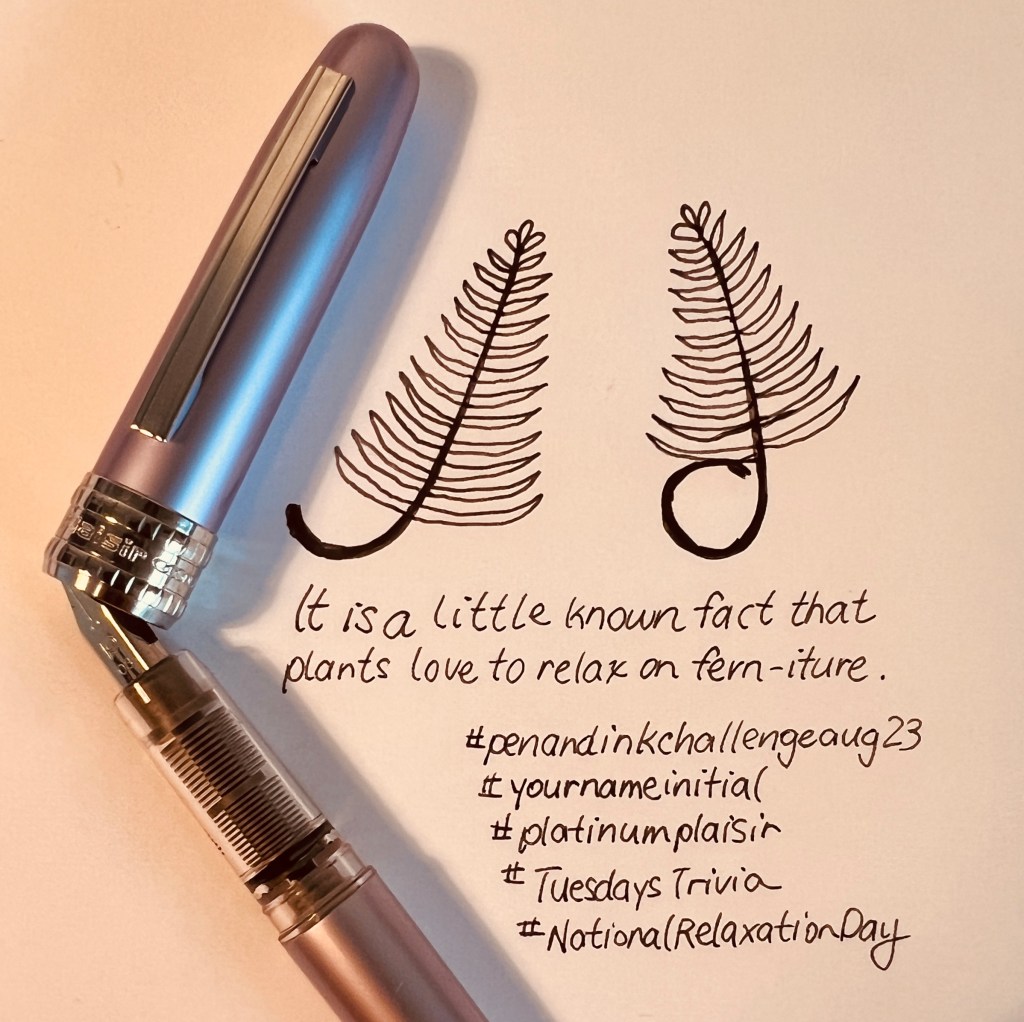 It is a little known fact that
plants love to relax on fern-iture.
#penandinkchallengeaug23
#yournameinitial
#platinumplaisir
#TuesdaysTrivia
#NationalRelaxationDay